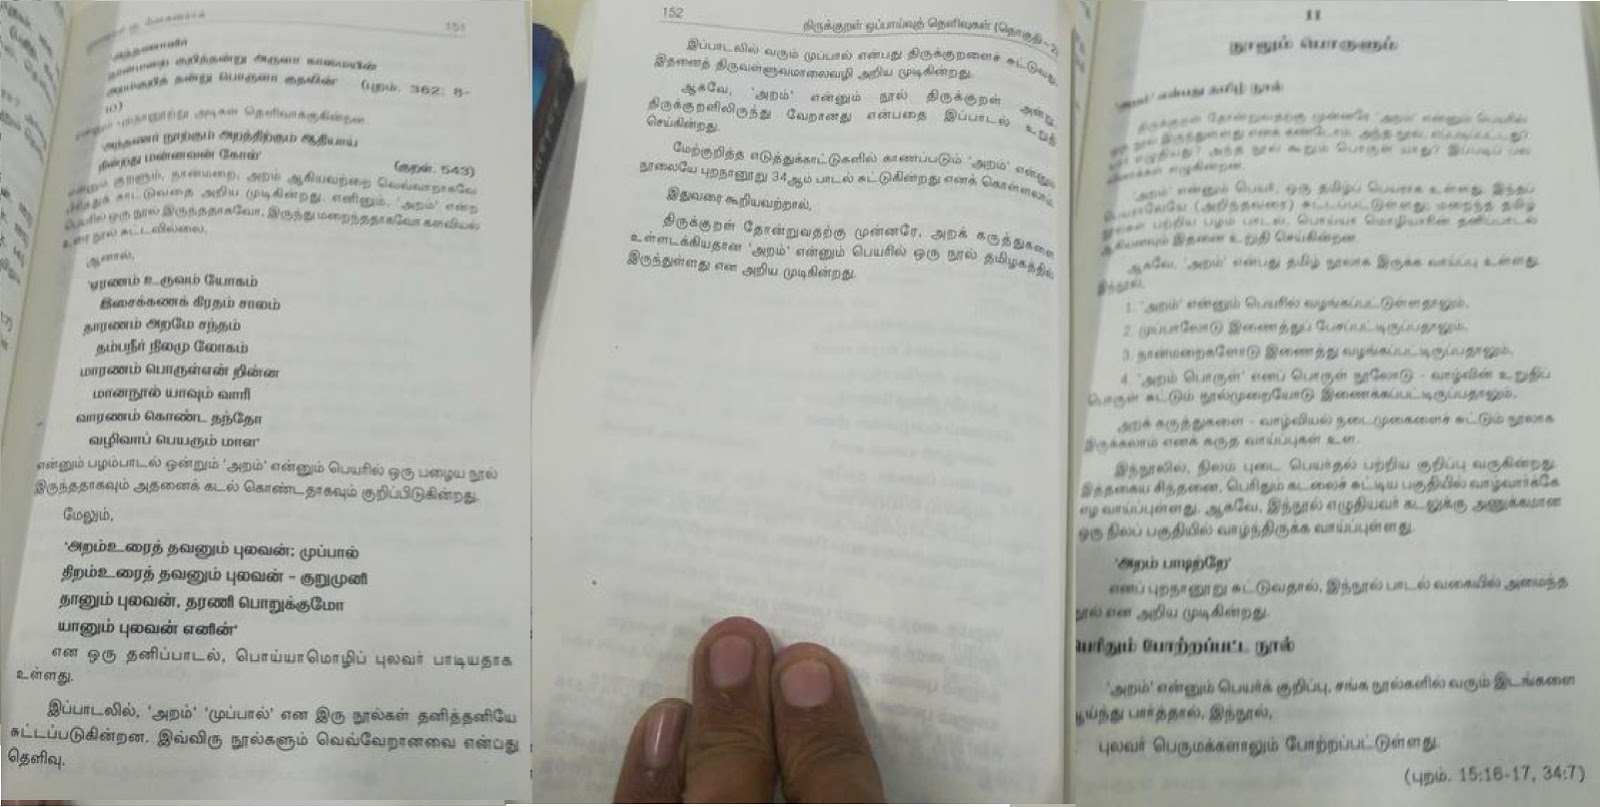 151
அந்தணாளர்
நான்மறை குறித்தன்று அருளா காமையின்
அறம்குறித் தன்று பொருளா குதலின்' (புறம். 362: 8-
10)
என்னும் புறநானூற்று அடிகள் தெளிவாக்குகின்றன.
'அந்தணர் நூற்கும் அறத்திற்கும் ஆதியாய்
நின்றது மன்னவன் கோல்' (குறள். 543)
என்னும் குறளும், நான்மறை, அறம் ஆகியவற்றை வெவ்வறாகவே
பிரித்துக் காட்டுவதை அறிய முடிகின்றது. எனினும், 'அறம்' என்ற
பெயரில் ஒரு நூல் இருந்ததாகவோ, இருந்து மறைந்ததாகவோ களவியல்
உரை நூல் சுட்டவில்லை.
ஆனால்,
'ஏரணம் உருவம் யோகம்
இசைக்கணக் கிரதம் சாலம்
தாரணம் அறமே சந்தம்
தம்பநீர் நிலமு லோகம்
மாரணம் பொருள்என் றின்ன
மானநூல் யாவும் வாரி
வாரணம் கொண்ட தந்தோ
வழிவாப் பெயரும் மாள'
என்னும் பழம்பாடல் ஒன்றும் 'அறம்' என்னும் பெயரில் ஒரு பழைய நூல்
இருந்ததாகவும் அதனைக் கடல் கொண்டதாகவும் குறிப்பிடுகின்றது.
மேலும்,
'அறம்உரைத் தவனும் புலவன்; முப்பால்
திறம்உரைத் தவனும் புலவன் - குறுமுனி
தானும் புலவன், தரணி பொறுக்குமோ
யானும் புலவன் எனின்'
என ஒரு தனிப்பாடல், பொய்யாமொழிப் புலவர் பாடியதாக
உள்ளது.
இப்பாடலில், 'அறம்' 'முப்பால்' என இரு நூல்கள் தனித்தனியே
சுட்டப்படுகின்றன. இவ்விரு நூல்களும் வெவ்வேறானவை என்பது
தெளிவு.
152
திருக்குறள் ஒப்பாய்வுத் தெளிவுகள் (தொகுதி-2)
இப்பாடலில் வரும் முப்பால் என்பது திருக்குறளைச் சுட்டுவது
இதனைத் திருவள்ளுவமாலைவழி அறிய முடிகின்றது.
ஆகவே, 'அறம்' என்னும் நூல் திருக்குறள் அன்று,
திருக்குறளிலிருந்து வேறானது என்பதை இப்பாடல் உறுதி
செய்கின்றது.
மேற்குறித்த எடுத்துக்காட்டுகளில் காணப்படும் 'அறம்' என்னும்
நூலையே புறநானூறு 34ஆம் பாடல் சுட்டுகின்றது எனக் கொள்ளலாம்.
இதுவரை கூறியவற்றால்,
திருக்குறள் தோன்றுவதற்கு முன்னரே, அறக் கருத்துகளை
உள்ளடக்கியதான 'அறம்' என்னும் பெயரில் ஒரு நூல் தமிழகத்தில்
இருந்துள்ளது என அறிய முடிகின்றது.
11
நூலும் பொருளும்
'அறம்' என்பது தமிழ் நூல்
திருக்குறள் தோன்றுவதற்கு முன்னரே 'அறம்' என்னும் பெயரில்
ஒரு நூல் இருந்துள்ளது எனக் கண்டோம். அந்த நூல் எப்படிப்பட்டது?
யார் எழுதியது? அந்த நூல் கூறும் பொருள் யாது? இப்படிப் பல
வினாக்கள் எழுகின்றன.
'அறம்' என்னும் பெயர், ஒரு தமிழ்ப் பெயராக உள்ளது. இந்தப்
பெயராலேயே (அறிந்தவரை) சுட்டப்பட்டுள்ளது. மறைந்த தமிழ்
நூல்கள் பற்றிய பழம் பாடல், பொய்யா மொழியாரின் தனிப்பாடல்
ஆகியனவும் இதனை உறுதி செய்கின்றன.
ஆகவே, 'அறம்' என்பது தமிழ் நூலாக இருக்க வாய்ப்பு உள்ளது.
இந்நூல்,
1. 'அறம்' என்னும் பெயரில் வழங்கப்பட்டுள்ளதாலும்,
2. முப்பாலோடு இணைத்துப் பேசப்பட்டிருப்பதாலும்,
3. நான்மறைகளோடு இணைத்து வழங்கப்பட்டிருப்பதாலும்,
4. 'அறம் பொருள்' எனப் பொருள் நூலோடு - வாழ்வின் உறுதிப்
பொருள் சுட்டும் நூல்முறையோடு இணைக்கப்பட்டிருப்பதாலும்,
அறக் கருத்துகளை - வாழ்வியல் நடைமுகைளைச் சுட்டும் நூலாக
இருக்கலாம் எனக் கருத வாய்ப்புகள் உள.
இந்நூலில், நிலம் புடை பெயர்தல் பற்றிய குறிப்பு வருகின்றது.
இத்தகைய சிந்தனை, பெரிதும் கடலைச் சுட்டிய பகுதியில் வாழ்வார்க்கே
எழ வாய்ப்புள்ளது. ஆகவே, இந்நூல் எழுதியவர் கடலுக்கு அணுக்கமான
ஒரு நிலப் பகுதியில் வாழ்ந்திருக்க வாய்ப்புள்ளது.
'அறம் பாடிற்றே'
எனப் புறநானூறு சுட்டுவதால், இந்நூல் பாடல் வகையில் அமைந்த
நூல் என அறிய முடிகின்றது.
பெரிதும் போற்றப்பட்ட நூல்
'அறம்' என்னும் பெயர்க் குறிப்பு, சங்க நூல்களில் வரும் இடங்களை
ஆய்ந்து பார்த்தால், இந்நூல்,
புலவர் பெருமக்களாலும் போற்றப்பட்டுள்ளது.
(புறம். 15:16-17, 34:7)